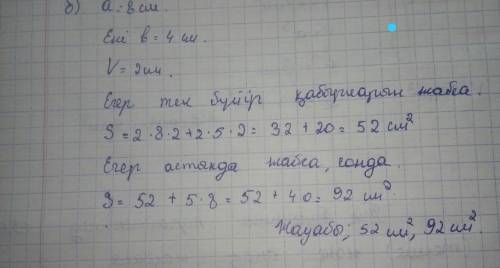 б) а = 8 см.
Ені в = 4 см.
V = 2 см.
Егер тек бүйір қабырғаларын жабса.
S = 2 · 8 · 2 + 2 · 5 · 2 = 32 + 20 = 52 см²
Егер астында жабса, сонда.
S = 52 + 5 · 8 = 52 + 40 = 92 см²
Жауабы; 52 см², 92 см².